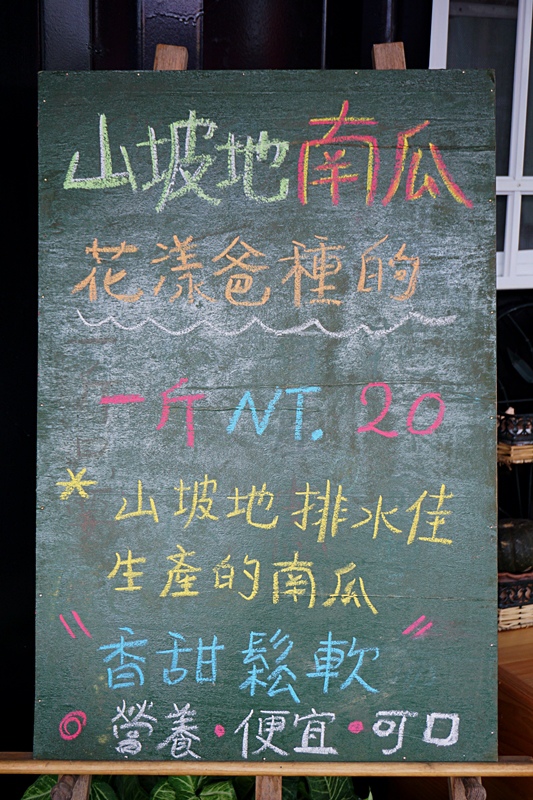 山坡地南瓜
花漾爸種的
一斤 NT. 20
* 山坡地排水佳
生產的南瓜
〃香甜鬆軟〃
◎營養·便宜·可口